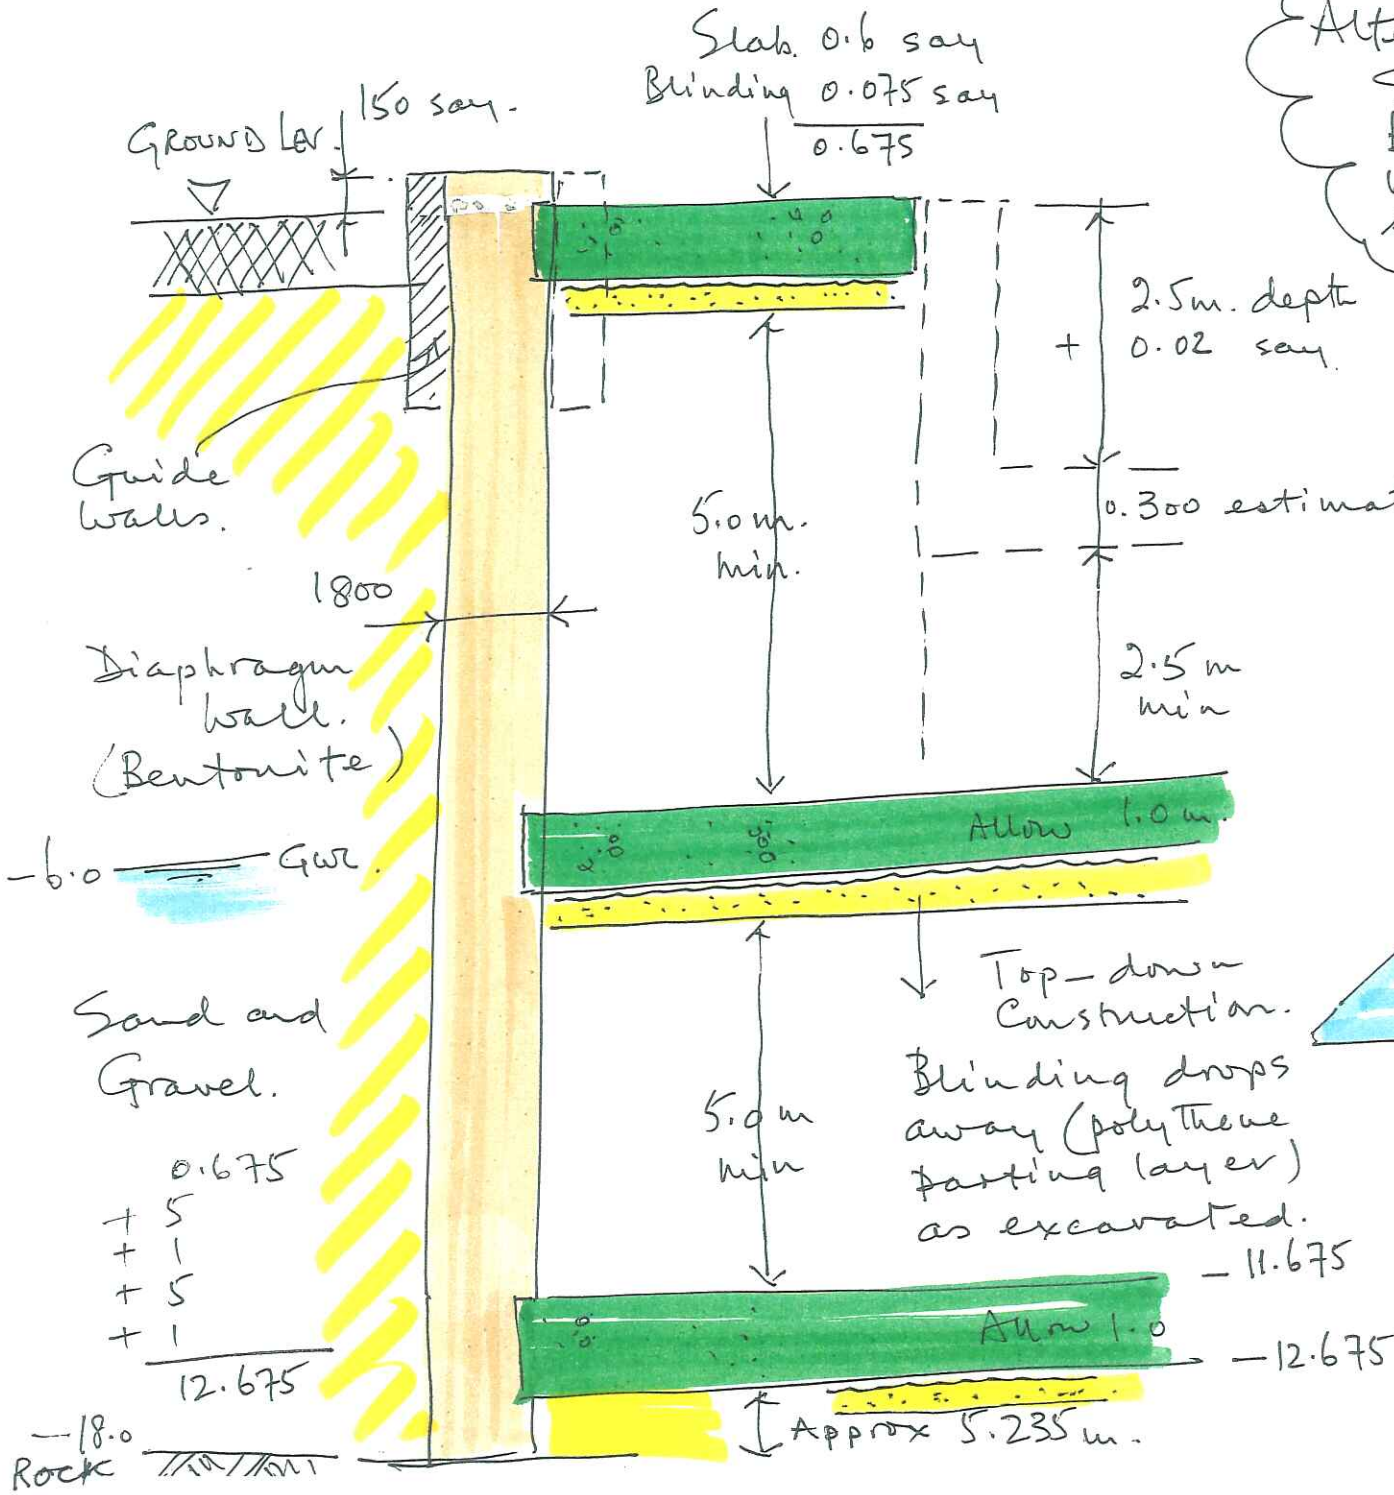 Slab 0.6 say
Blinding 0.075 say
0.675
150 say.
GROUND LEV.
2.5m. depth
+ 0.02 say
Guide
Walls.
5.0m.
min.
0.300
1800
2.5m
min
Diaphragm
Wall.
(Bentonite)
Allow 1.0m.
-6.0
GWL
Top-down
Construction.
Blinding drops
away (polythene
parting layer)
as excavated.
Sand and
Gravel.
5.0m
min
0.675
+ 5
+ 1
+ 5
+ 1
12.675
- 11.675
Allow 1.0
- 12.675
Approx 5.235m.
-18.0
ROCK